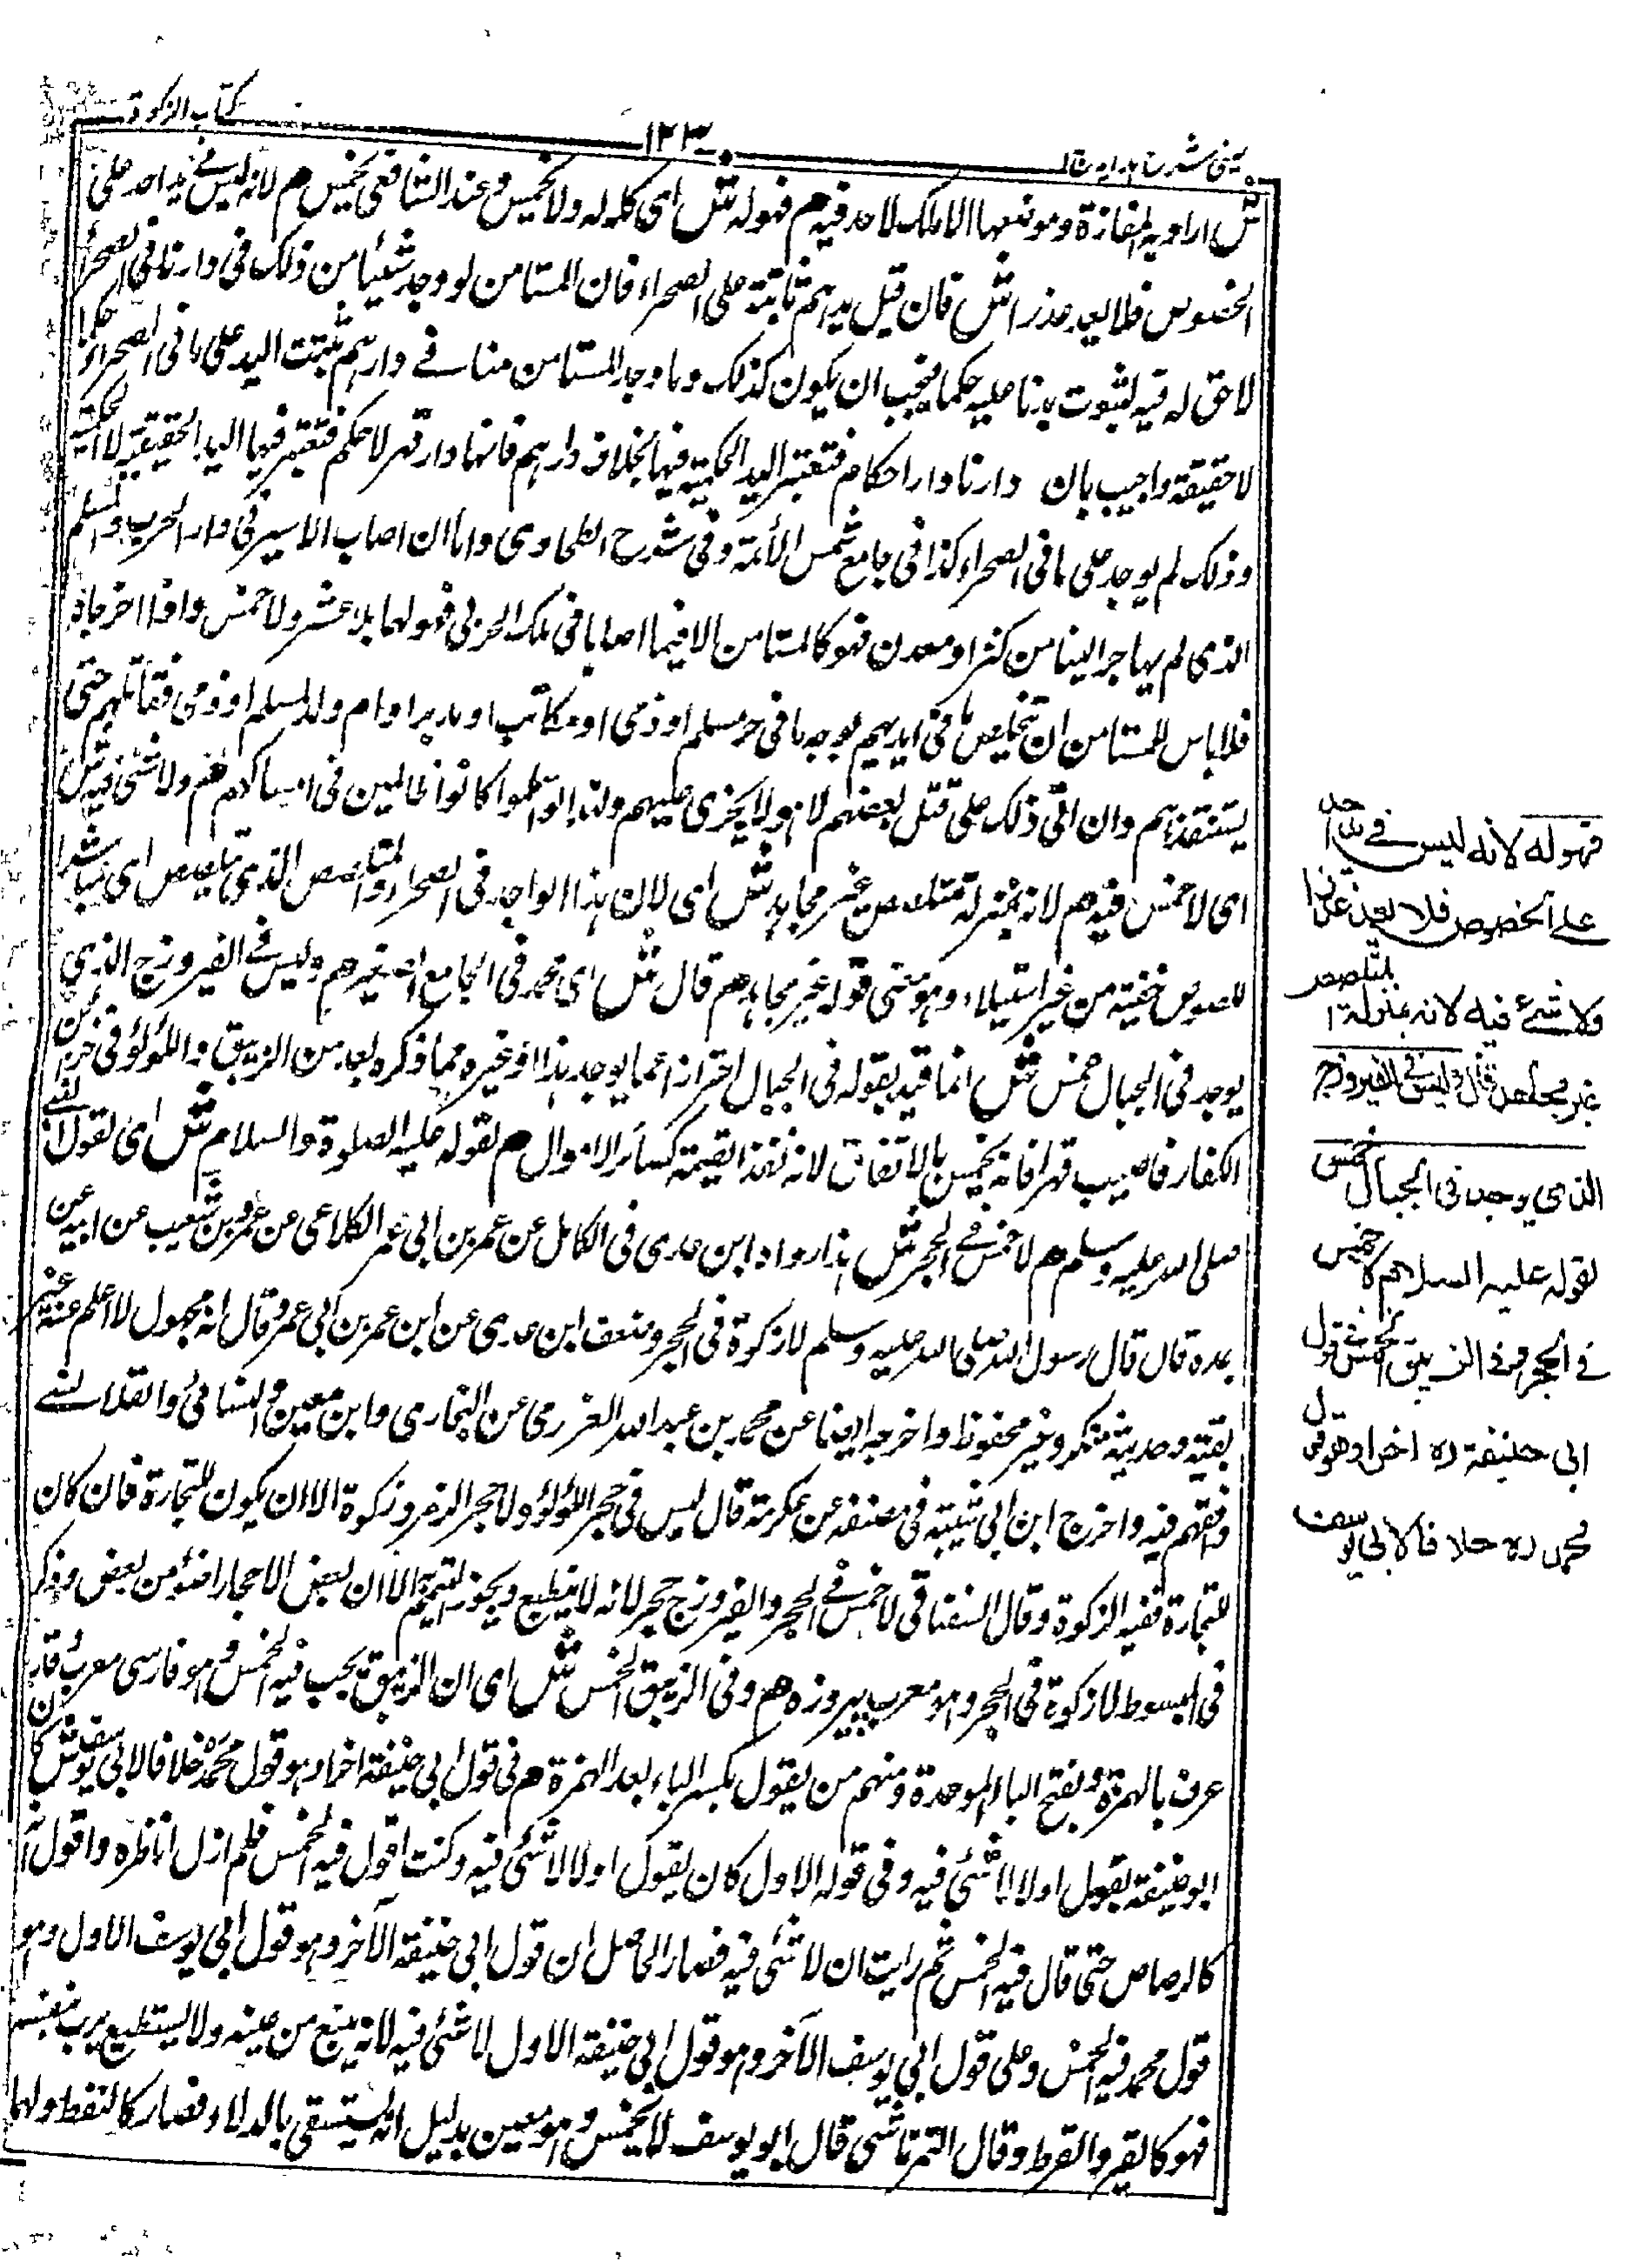 كتاب الزكوة
١٢٣٠
عينى شرح هدايه ج ١
ش اراد به المفازة وموضعها لا ملك لاحد فيه م فهو له ش اى كله له ولا يخمس وعند الشافعى يخمس م لانه ليس فى يد احد على
الخصوص فلا يعد غدرا ش فان قيل يدهم ثابتة على الصحراء فان المستامن لو وجد شيئا من ذلك فى دارنا فى الصحراء
لا حق له فيه لثبوت يدنا عليه حكما فيجب ان يكون كذلك وما وجد المستامن منا فى دارهم ثبتت اليد على ما فى الصحراء حكما
لا حقيقة واجيب بان دارنا دار احكام فتعتبر اليد الحكمية فيها بخلاف دارهم فانها دار قهر لا حكم فتعتبر فيها اليد الحقيقية لا الحكمية
وذلك لم يوجد على ما فى الصحراء كذا فى جامع شمس الأئمة وفى شرح الطحاوى واما ان اصاب الاسير فى دار الحرب والمسلم
الذى لم يهاجر الينا من كنز او معدن فهو كالمستامن الا فيما اصابا فى ملك الحربى فهو لهما بلا عشر ولا خمس واذا اخرجاه
فلا باس للمستامن ان يخلص ما فى ايديهم بوجه ما فى حر مسلم او ذمى او مكاتب او مدبر او ام ولد لمسلم او ذمى فقاتلهم حتى
يستنقذهم وان اتى ذلك على قتل بعضهم لانه ولا يجزى عليهم ولذا لو اسلموا كانوا ظالمين فى امساكهم م ولا شئى فيه ش
اى لا خمس فيه م لانه بمنزلة متلصص غير مجاهد ش اى لان هذا الواجد فى الصحراء والمتلصص الذى يتلصص اى يباشر
اللصوص خفية من غير استيلاء وهو معنى قوله غير مجاهد م قال ش اى محمد فى الجامع الصغير م وليس فى الفيروزج الذى
يوجد فى الجبال خمس ش انما قيد بقوله فى الجبال احترازا عما يوجد هذا او غيره مما ذكره بعد من الزيبق واللؤلؤ فى خزائن
الكفار فاصيب قهرا فانه يخمس بالاتفاق لانه نقد القيمة كسائر الاموال م لقوله عليه الصلوة والسلام ش اى لقول النبى
صلى الله عليه وسلم م لا خمس فى الحجر ش هذا رواه ابن عدى فى الكامل عن عمر بن ابى عمر الكلاعى عن عمرو بن شعيب عن ابيه عن
جده قال قال رسول الله صلى الله عليه وسلم لا زكوة فى الحجر وضعف ابن عدى عن ابن عمر بن ابى عمر وقال انه مجهول لا اعلم عنه غير
بقية وحديثه منكر وغير محفوظ واخرجه ايضا عن محمد بن عبد الله العزرمى عن البخارى وابن معين والنسائى والفلاس
وافقهم فيه واخرج ابن ابى شيبة فى مصنفه عن عكرمة قال ليس فى حجر اللؤلؤ ولا حجر الزمرد زكوة الا ان يكون للتجارة فان كان
للتجارة ففيه الزكوة وقال السغناقى لا خمس فى الحجر والفيروزج حجر لانه لا ينطبع ويجوز التيمم الا ان بعض الاحجار اضوء من بعض وذكر
فى المبسوط لا زكوة فى الحجر وهو معرب پيروزه م وفى الزيبق الخمس ش اى ان الزيبق يجب فيه الخمس وهو فارسى معرب قد
عرف بالهمزة وبفتح الباء الموحدة ومنهم من يقول بكسر الباء بعد الهمزة م فى قول ابى حنيفة اخرا وهو قول محمد خلافا لابى يوسف ش كان
ابو حنيفة يقول اولا لا شئى فيه وفى قوله الاول كان يقول اولا لا شئى فيه وكنت اقول فيه الخمس فلم ازل اناظره واقول انه
كالرصاص حتى قال فيه الخمس ثم رايت ان لا شئى فيه فصار الحاصل ان قول ابى حنيفة الآخر وهو قول ابى يوسف الاول وهو
قول محمد فيه الخمس وعلى قول ابى يوسف الآخر وهو قول ابى حنيفة الاول لا شئى فيه لانه ينبع من عينه ولا يستطيع يرب بنفسه
فهو كالقير والقرط وقال التمرتاشى قال ابو يوسف لا يخمس وهو معين بدليل انه يستسقى بالدلاء فصار كالنفط ولهما
فهو له لانه ليس فى يد احد
على الخصوص فلا يعد غدرا
ولا شئ فيه لانه بمنزلة المتلصص
غير مجاهد قال وليس فى الفيروزج
الذى يوجد فى الجبال خمس
لقوله عليه السلام لا خمس
فى الحجر وفى الزيبق الخمس فى قول
ابى حنيفة ره اخرا وهو قول
محمد ره خلافا لابى يوسف